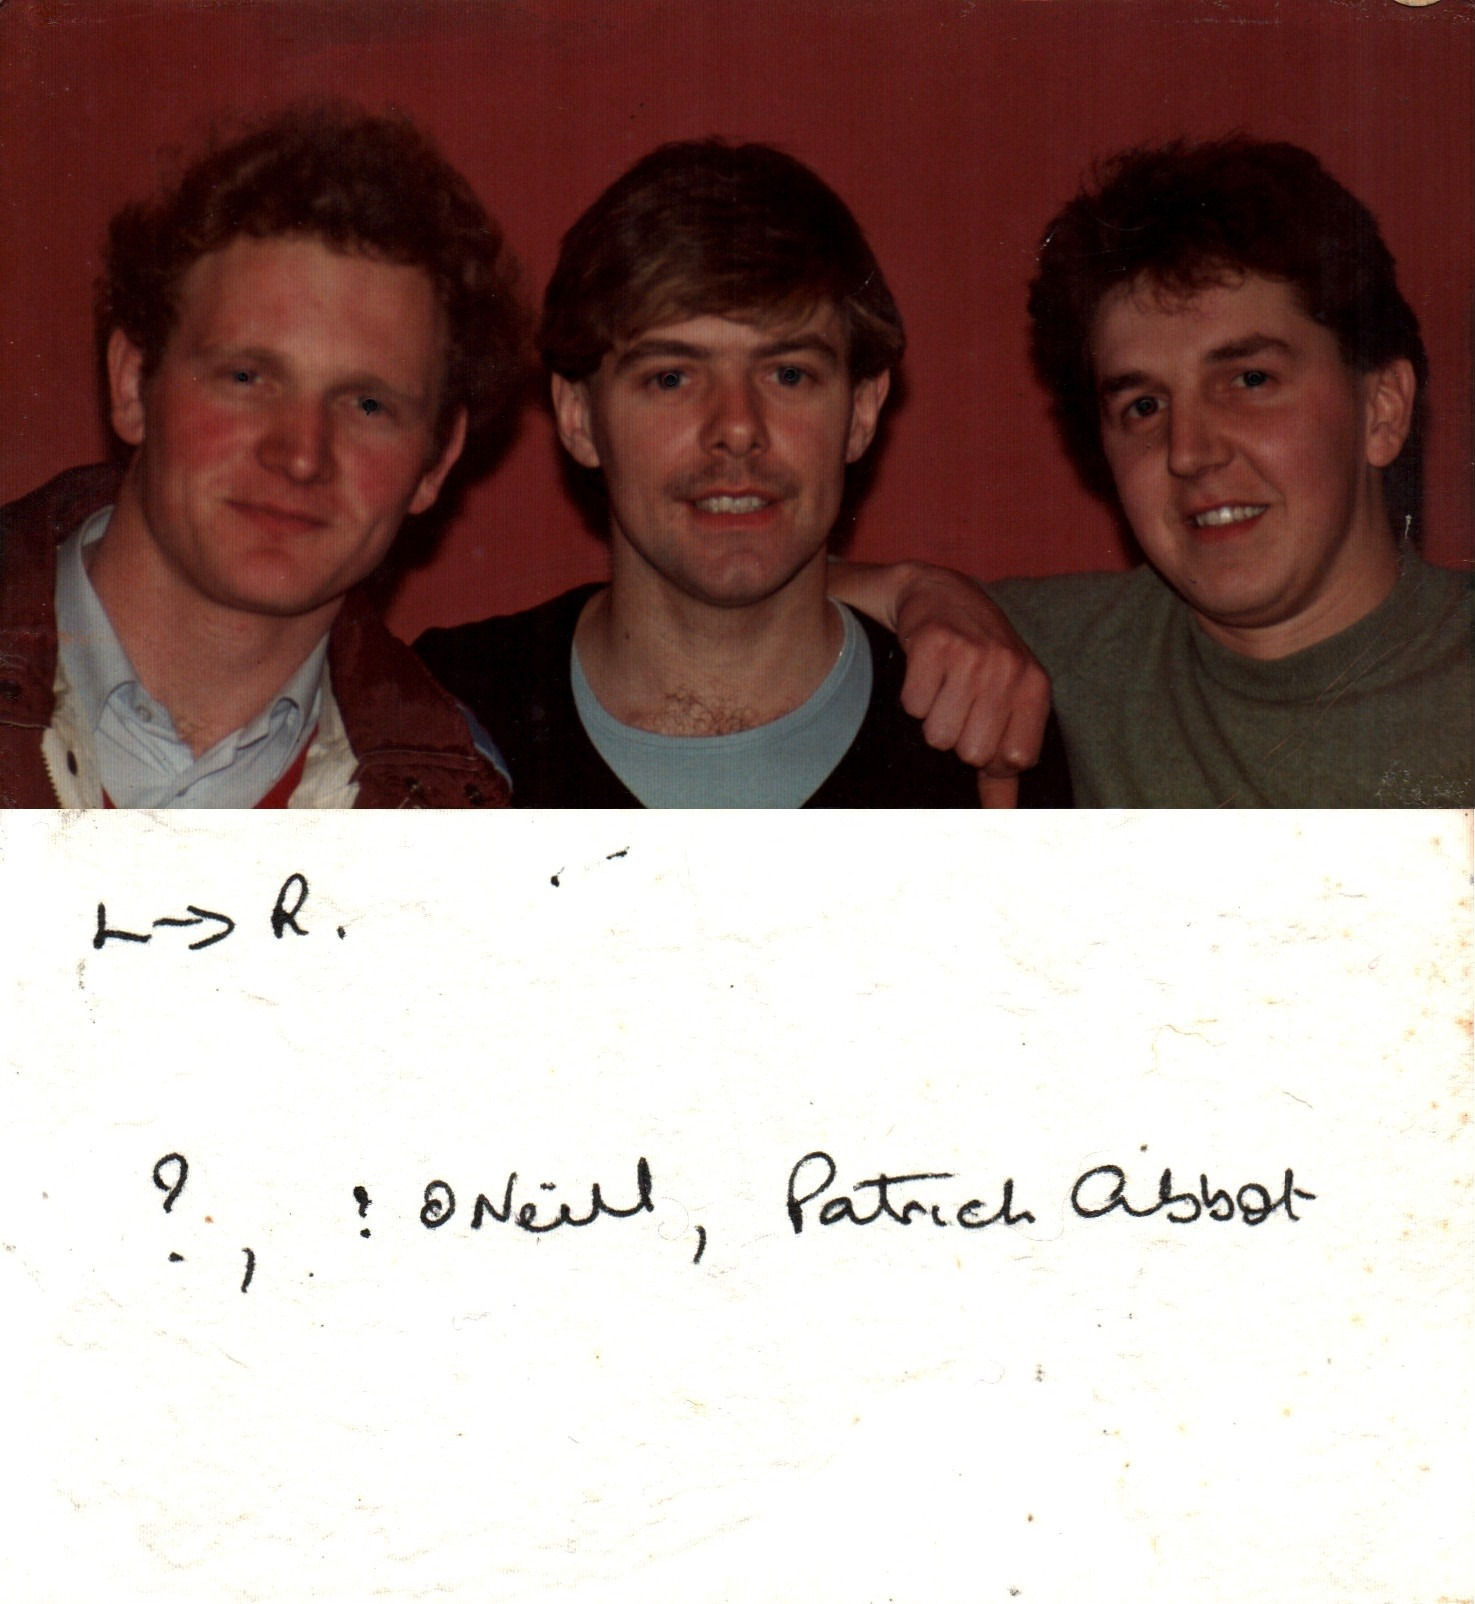 L → R.
?, ? O Neill, Patrick Abbot